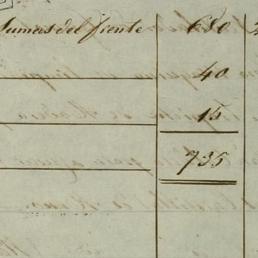 Sumas del frente 680
40
15
735